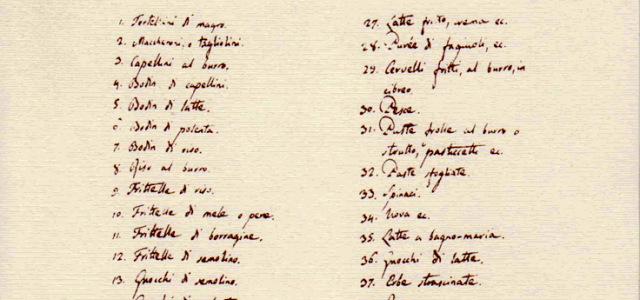 1. Tortellini di magro.
2. Maccheroni, o tagliolini.
3. Capellini al burro.
4. Bodin di capellini.
5. Bodin di latte.
6. Bodin di polenta.
7. Bodin di riso.
8. Riso al burro.
9. Frittelle di riso.
10. Frittelle di mele o pere.
11. Frittelle di borragine.
12. Frittelle di semolino.
13. Gnocchi di semolino.
27. Latte fritto, crema ec.
28. Purée di fagiuoli, ec.
29. Cervelli fritti, al burro, in
cibreo.
30. Pesce.
31. Paste frolle al burro o
strutto, pasticcetti ec.
32. Paste sfogliate.
33. Spinaci.
34. Uova ec.
35. Latte a bagno-maria.
36. Gnocchi di latte.
37. Erbe strascinate.